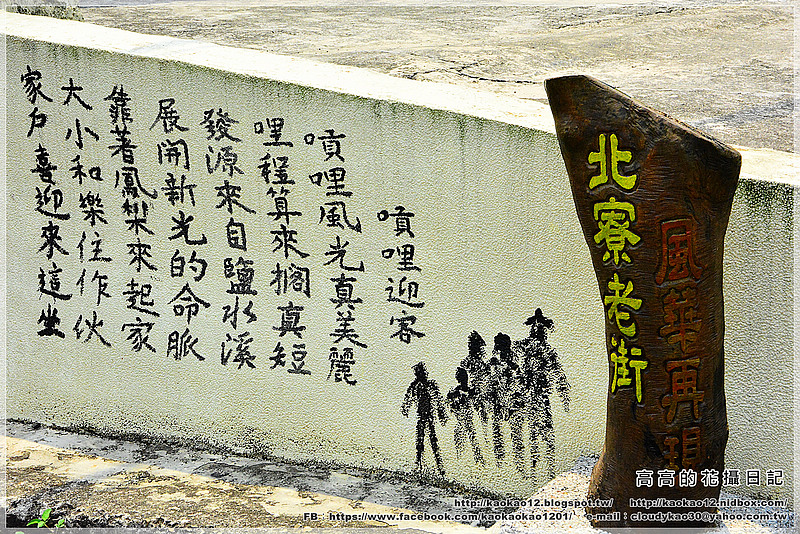 北寮老街
風華再現
噴哩迎客
噴哩風光真美麗
哩程算來擱真短
發源來自鹽水溪
展開新光的命脈
靠著鳳梨來起家
大小和樂住作伙
家戶喜迎來這坐
高高的花攝日記
http://kaokao12.blogspot.tw/ http://kaokao12.nidbox.com/
FB：https://www.facebook.com/kaokaokao1201/ e-mail：cloudykao30@yahoo.com.tw